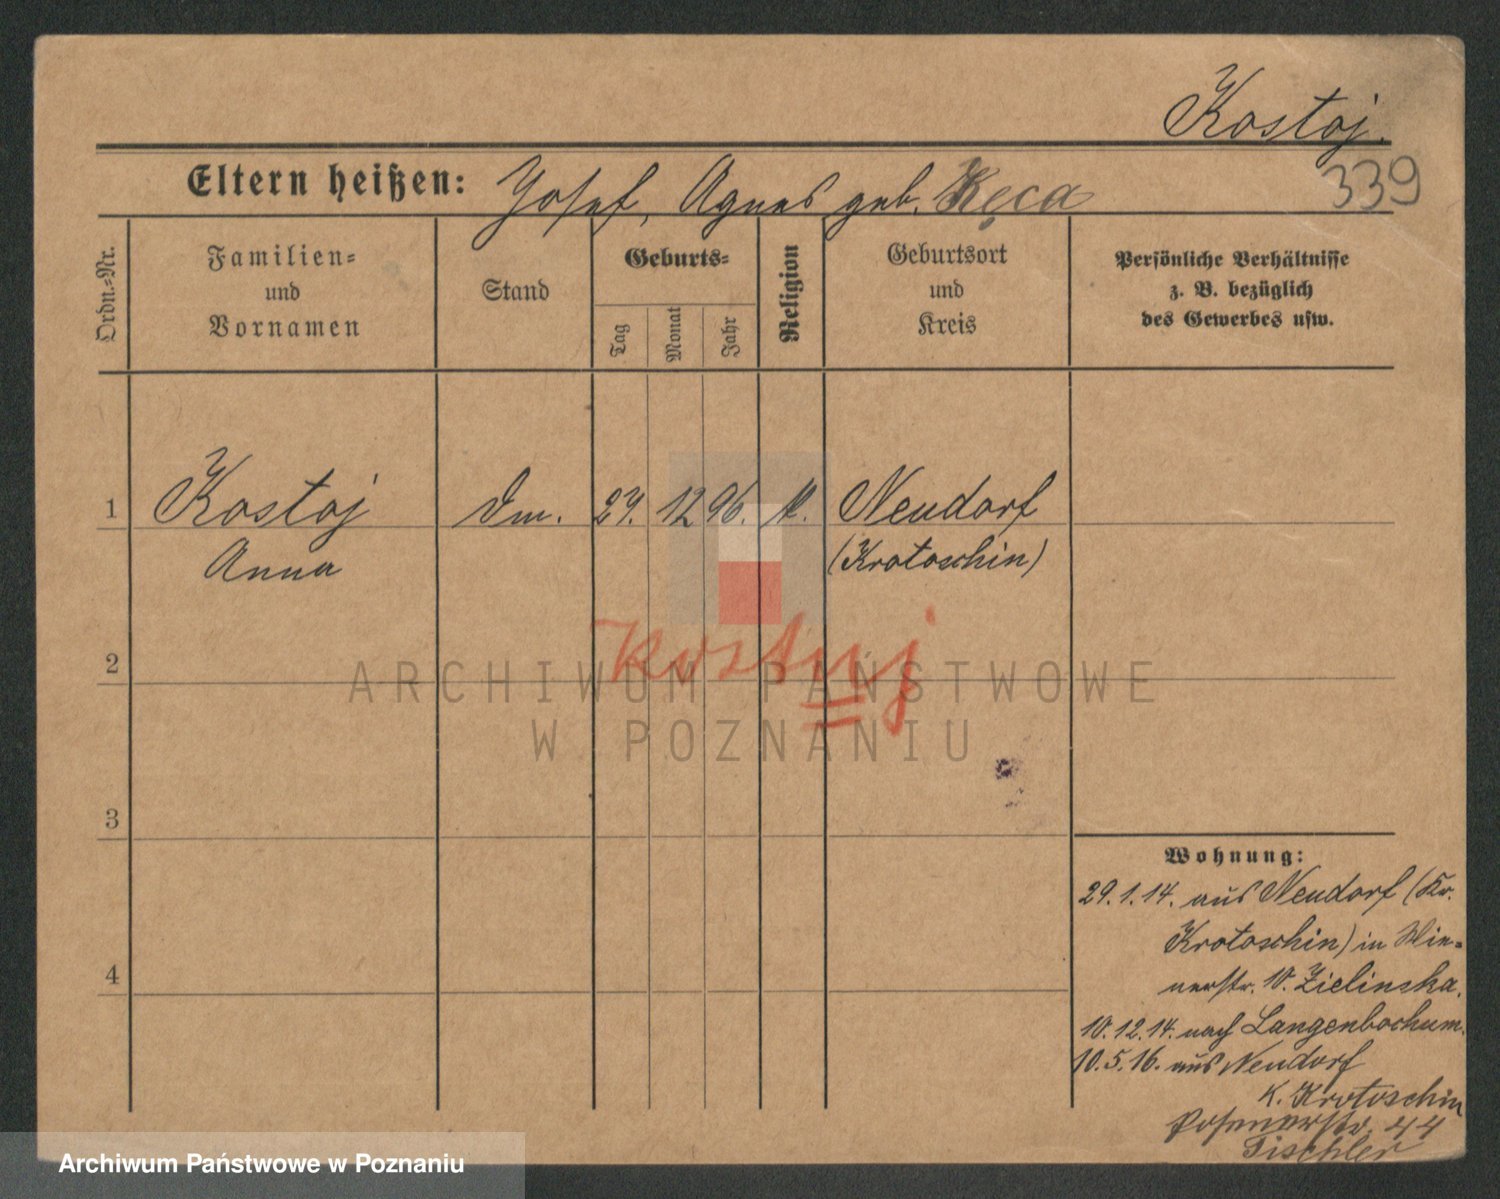 Kostoj.
339
Eltern heißen: Josef, Agnes geb. Kęca
Ordn.-Nr.
Familien-
und
Vornamen
Stand
Geburts-
Tag
Monat
Jahr
Religion
Geburtsort
und
Kreis
Persönliche Verhältnisse
z. B. bezüglich
des Gewerbes usw.
1 Kostoj 12 96. k. Neudorf
Anna (Krotoschin)
Kostuj
2
ARCHIWUM PAŃSTWOWE
W POZNANIU
3
Wohnung:
29.1.14. aus Neudorf (Kr.
Krotoschin) in Wie-
nerstr. 10. Zielinska.
4
10.12.14. nach Langenbochum.
10.5.16. aus Neudorf
K. Krotoschin
Posenerstr. 44
Tischler
Archiwum Państwowe w Poznaniu